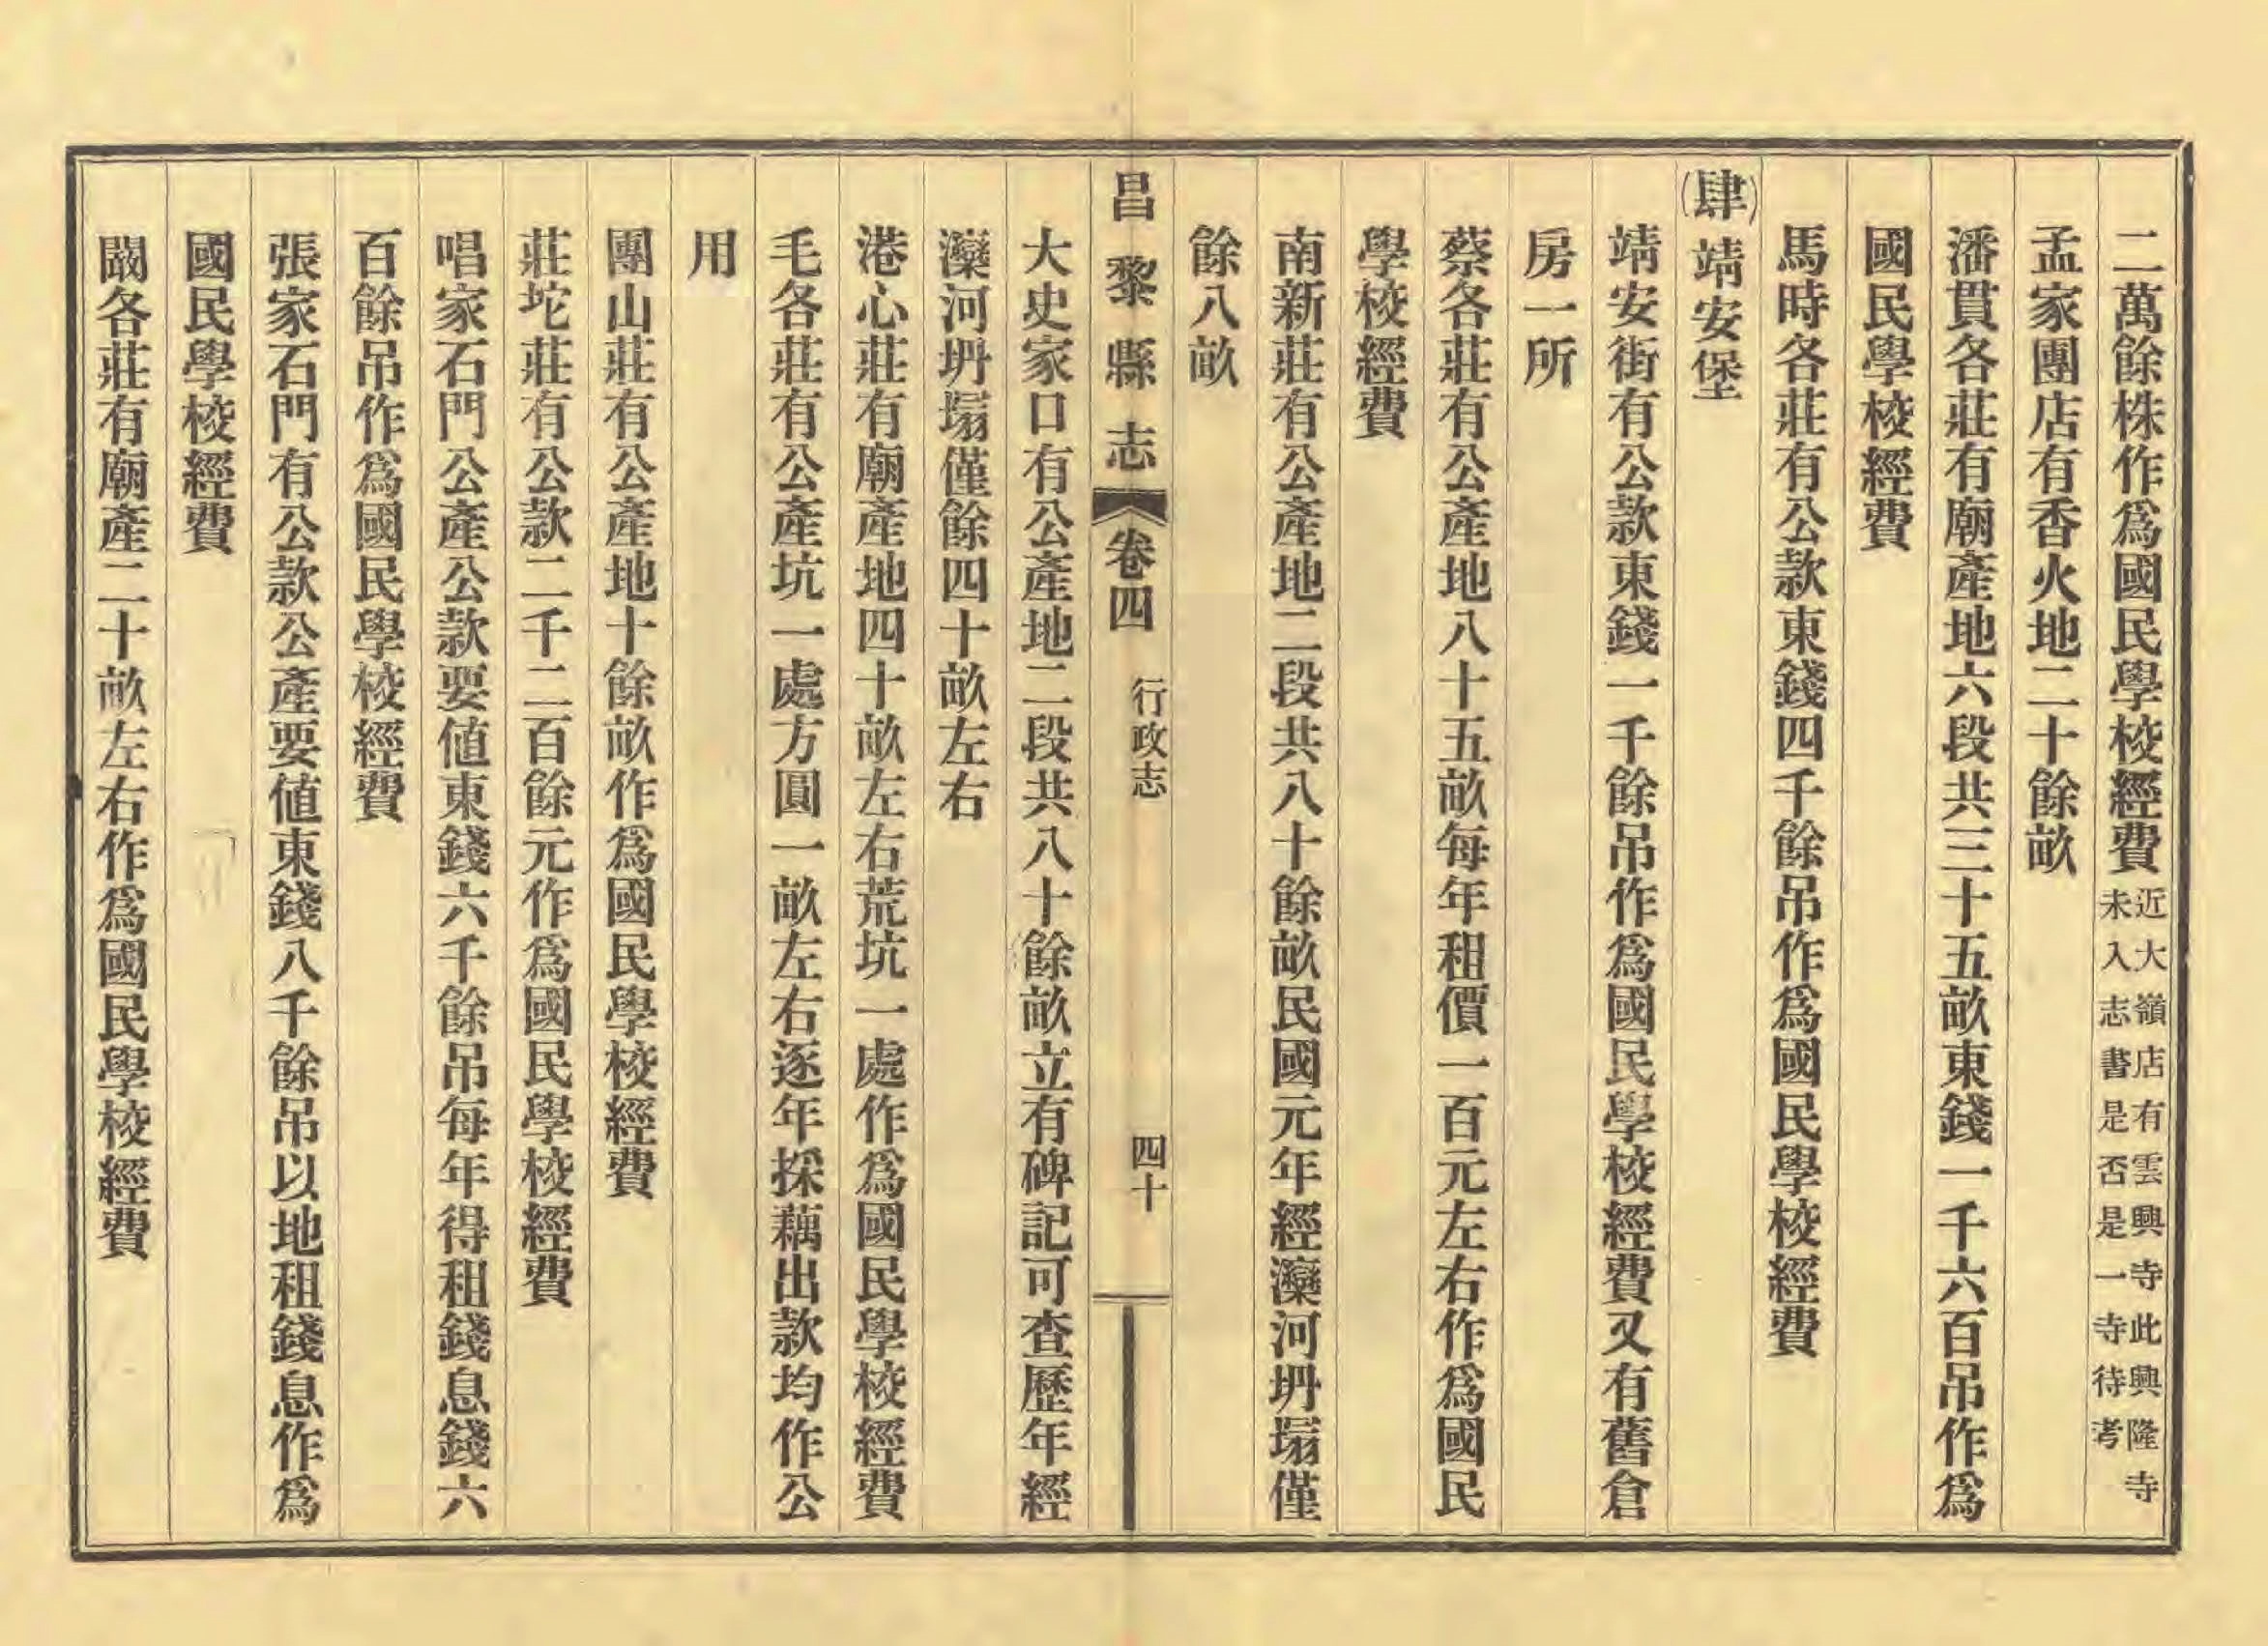 二萬餘株作爲國民學校經費
近大嶺店有雲興寺此興隆寺
未入志書是否是一寺待考
孟家團店有香火地二十餘畝
潘貫各莊有廟產地六段共三十五畝東錢一千六百吊作爲
國民學校經費
馬時各莊有公款東錢四千餘吊作爲國民學校經費
(肆)靖安堡
靖安街有公款東錢一千餘吊作爲國民學校經費又有舊倉
房一所
蔡各莊有公產地八十五畝每年租價一百元左右作爲國民
學校經費
南新莊有公產地二段共八十餘畝民國元年經灤河坍塌僅
餘八畝
昌黎縣志 卷四 行政志 四十
大史家口有公產地二段共八十餘畝立有碑記可查歷年經
灤河坍塌僅餘四十畝左右
港心莊有廟產地四十畝左右荒坑一處作爲國民學校經費
毛各莊有公產坑一處方圓一畝左右逐年採藕出款均作公
用
團山莊有公產地十餘畝作爲國民學校經費
莊坨莊有公款二千二百餘元作爲國民學校經費
唱家石門公產公款要値東錢六千餘吊每年得租錢息錢六
百餘吊作爲國民學校經費
張家石門有公款公產要値東錢八千餘吊以地租錢息作爲
國民學校經費
闞各莊有廟產二十畝左右作爲國民學校經費